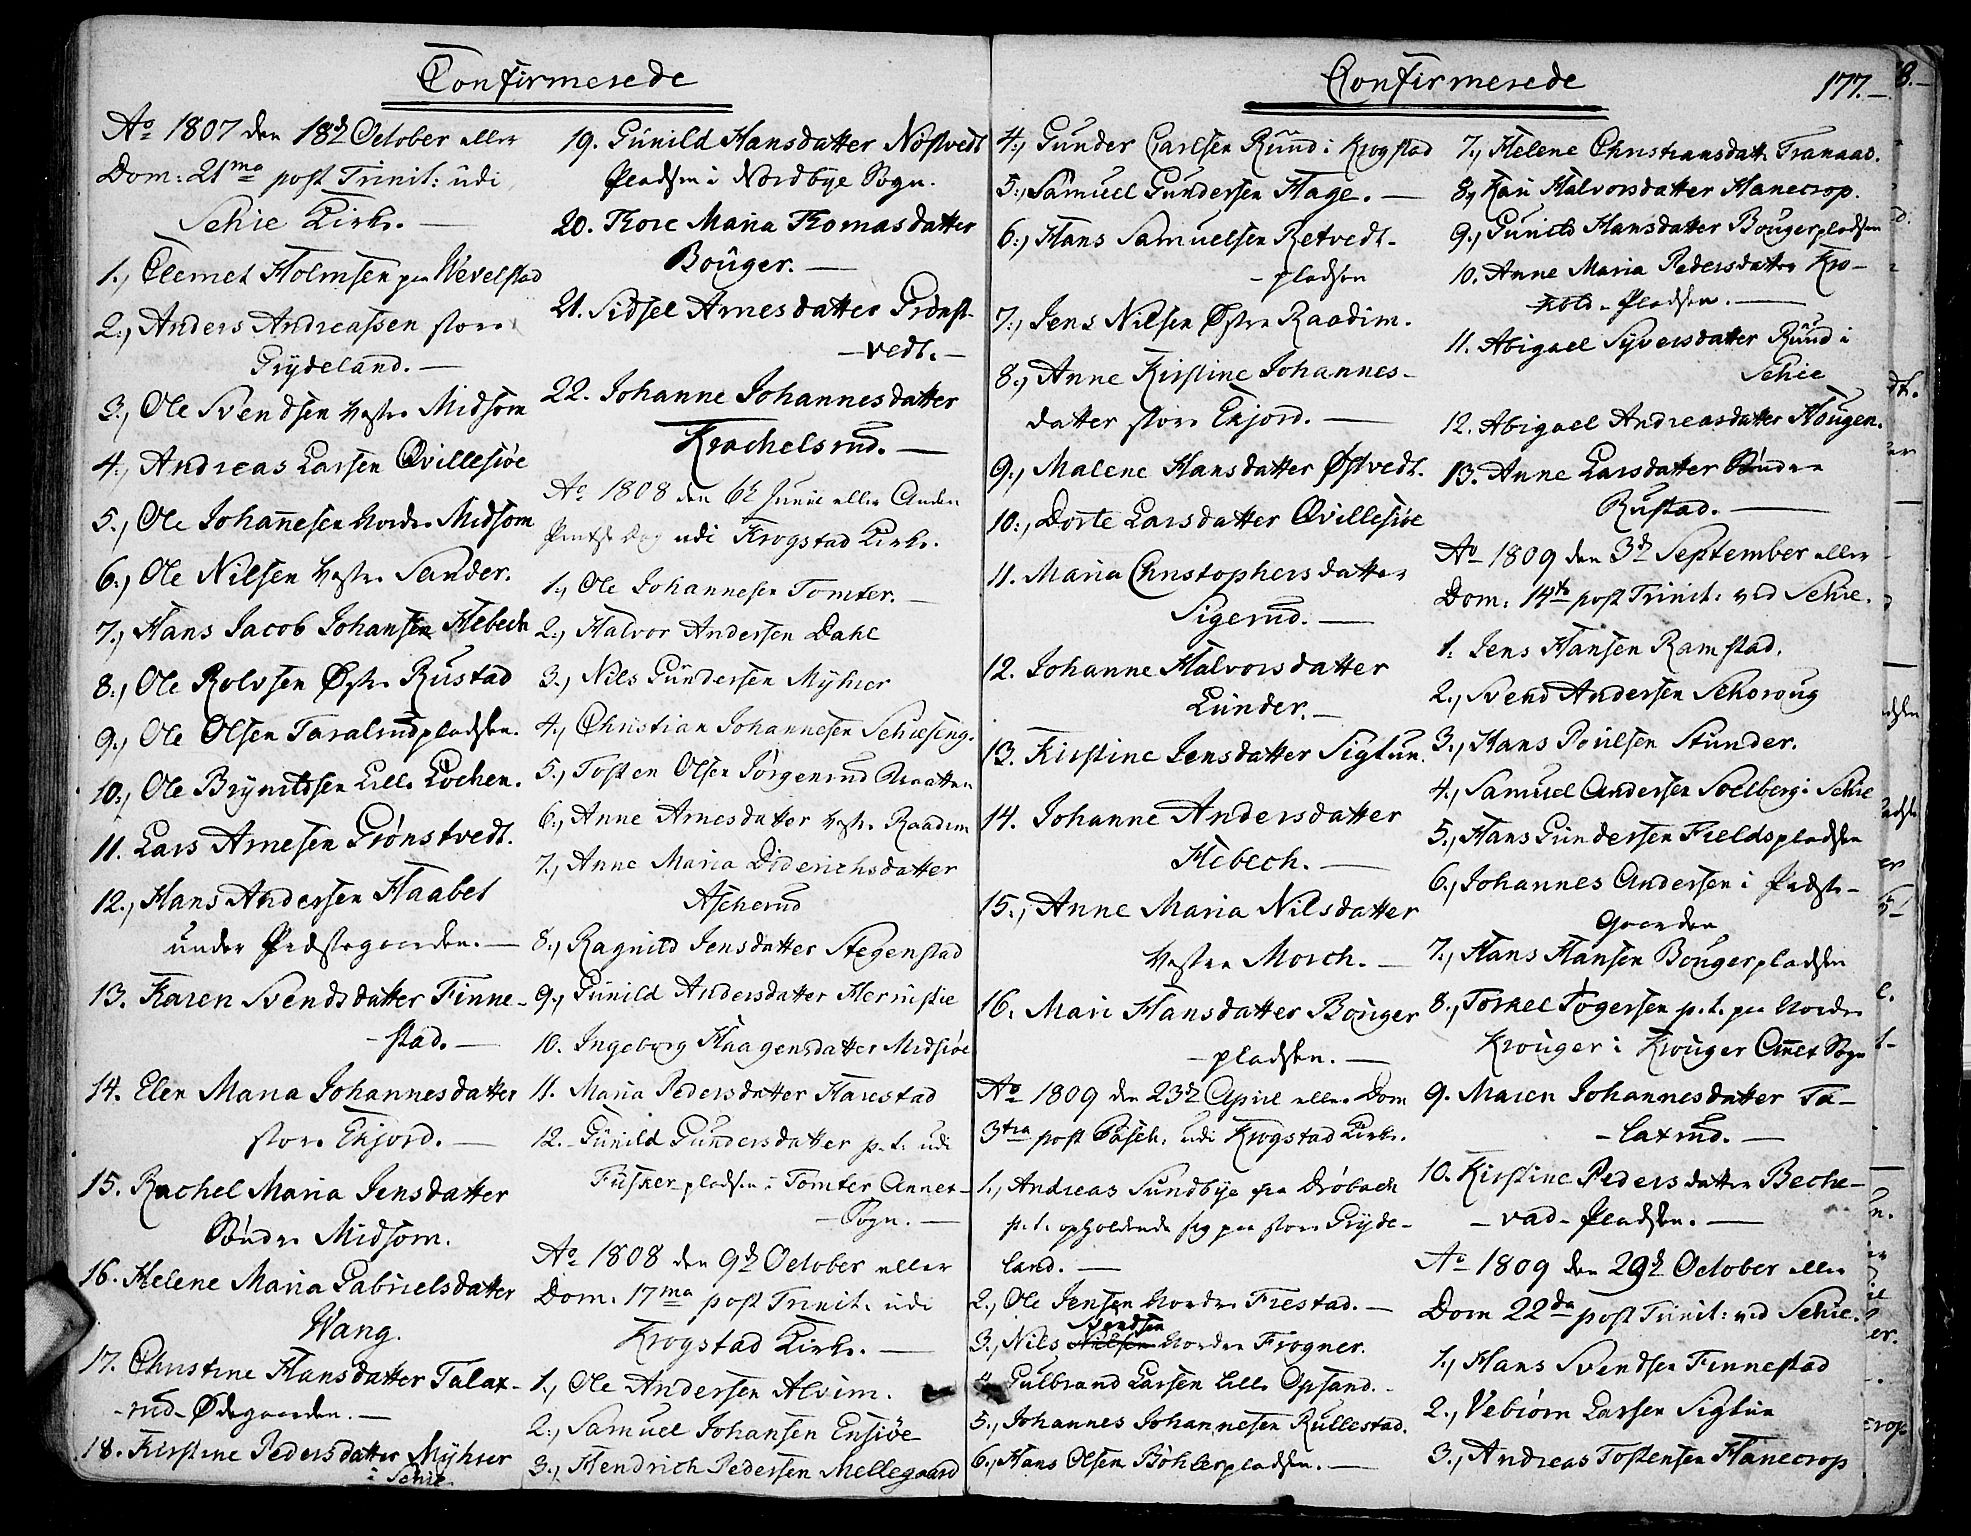 Confirmerede
Ao 1807 den 18de October eller
Dom: 21ma post Trinit: udi
Schie Kirke. —
1., Clemet Holmsen paa Wevelstad
2., Anders Andreassen store
Grydeland. —
3., Ole Svendsen Vestre Midsom
4., Andreas Larsen Qvillesiöe
5., Ole Johannesen Nordre Midsom
6., Ole Nilsen Vestre Sander.
7., Hans Jacob Johansen Hebech
8., Ole Rolvsen Østre Rustad
9., Ole Olsen Taralrudpladsen.
10., Ole Brynildsen Lille Löchen.
11. Lars Arnesen Grönstvedt.
12., Hans Andersen Haabet
under Præstegaarden. —
13. Karen Svendsdatter Finne-
-stad. —
14. Elen Maria Johannesdatter
store Ekjord. —
15. Rachel Maria Jensdatter
Söndre Midsom.
16. Helene Maria Gabrielsdatter
Wang.
17. Christine Hansdatter Talax-
-rud-Ödegaarden. —
18. Kirstine Pedersdatter Myhrer
i Schie
19. Gunild Hansdatter Nöstvedt
Pladsen i Nordbye Sogn.
20. Thore Maria Thomasdatter
Bouger. —
21. Sidsel Arnesdatter Grönst-
-vedt. —
22. Johanne Johannesdatter
Krachelsrud. —
Ao 1808 den 6te Junii eller Anden
Pintse Dag udi Krogstad Kirke.
1., Ole Johannesen Tomter. —
2., Halvor Andersen Dahl
3., Nils Gundersen Myhrer
4., Christian Johannesen Schiesing.
5., Tosten Olsen Jörgenrud
6., Anne Arnesdatter Vestre Raadim
7., Anne Maria Diderichsdatter
Ascherud
8., Ragnild Jensdatter Stegenstad
9., Gunild Andersdatter
10. Ingeborg Haagensdatter Midsiöe
11. Maria Pedersdatter Harestad
12. Gunild Gundersdatter p. t. udi
Fusker pladsen i Tomter Annex-
-Sogn. —
Ao 1808 den 9de October eller
Dom. 17ma post Trinit. udi
Krogstad Kirke. —
1., Ole Andersen Alvim.
2., Samuel Johansen Ensiöe
3., Hendrich Pedersen Mellegaard
Confirmerede
177. —
4., Gunder Carlsen Ruud i Krogstad
5., Samuel Gundersen Hage. —
6., Hans Samuelsen Retvedt-
-pladsen
7., Jens Nilsen Østre Raadim.
8., Anne Kirstine Johannes-
datter store Ekjord. —
9., Malene Hansdatter Østvedt.
10., Dorte Larsdatter Qvillesiöe
11. Maria Christophersdatter
Sigerud. —
12. Johanne Halvorsdatter
Lunder. —
13. Kirstine Jensdatter Sigtun.
14. Johanne Andersdatter
Hebech. —
15., Anne Maria Nilsdatter
Vestre Morch. —
16. Mari Hansdatter Bouger
-pladsen. —
Ao 1809 den 23de April eller Dom
3tia post Pasch. udi Krogstad Kirke.
1., Andreas Sundbye fra Dröbach
p. t. opholdende sig paa store Gryde-
land. —
2., Ole Jensen Nordre Frestad. —
Svendsen
3., Nils Nilsen Nordre Frogner.
4. Gulbrand Larsen Lille Opsand. —
5., Johannes Johannesen Rullestad.
6., Hans Olsen Böhlerpladsen. —
7., Helene Christiansdatter Tranaas.
8., Kari Halvorsdatter Hanecrop.
9., Gunild Hansdatter Bougerpladsen
10. Anne Maria Pedersdatter Kro-
-Pladsen. —
11. Abigael Syversdatter Ruud i
Schie
12. Abigael Andreasdatter Hougen.
13. Anne Larsdatter Söndre
Rustad. —
Ao 1809 den 3de September eller
Dom. 14te post Trinit: ved Schie.
1. Jens Hansen Ramstad.
2., Svend Andersen Schoroug
3., Hans Poulsen Stunder.
4., Samuel Andersen Solberg i Schie
5., Hans Gundersen Fieldspladsen
6., Johannes Andersen i Præste-
Gaarden
7., Hans Hansen Bougerpladsen
8., Torkel Togersen p. t. paa Nordre
Krouger i Krouger Annex Sogn
9. Maren Johannesdatter Ta-
-laxrud. —
10. Kirstine Pedersdatter Beche-
-vad-Pladsen. —
Ao 1809 den 29de October eller
Dom 22da post Trinit: ved Schie.
1., Hans Svendsen Finnestad
2., Vebiörn Larsen Sigtun
3., Andreas Tostensen Hanecrop